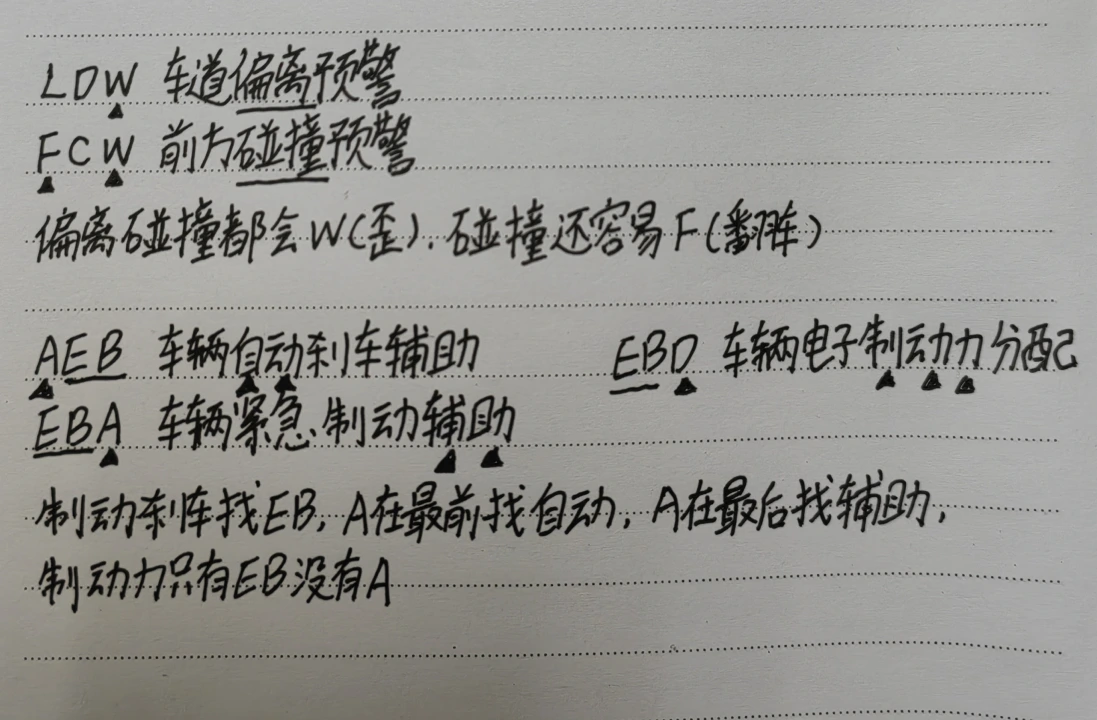 LDW 车道偏离预警
FCW 前方碰撞预警
偏离碰撞都会W(歪),碰撞还容易F(翻阵)
AEB 车辆自动刹车辅助 EBD 车辆电子制动力分配
EBA 车辆紧急制动辅助
制动刹车找EB,A在最前找自动,A在最后找辅助,
制动力只有EB没有A